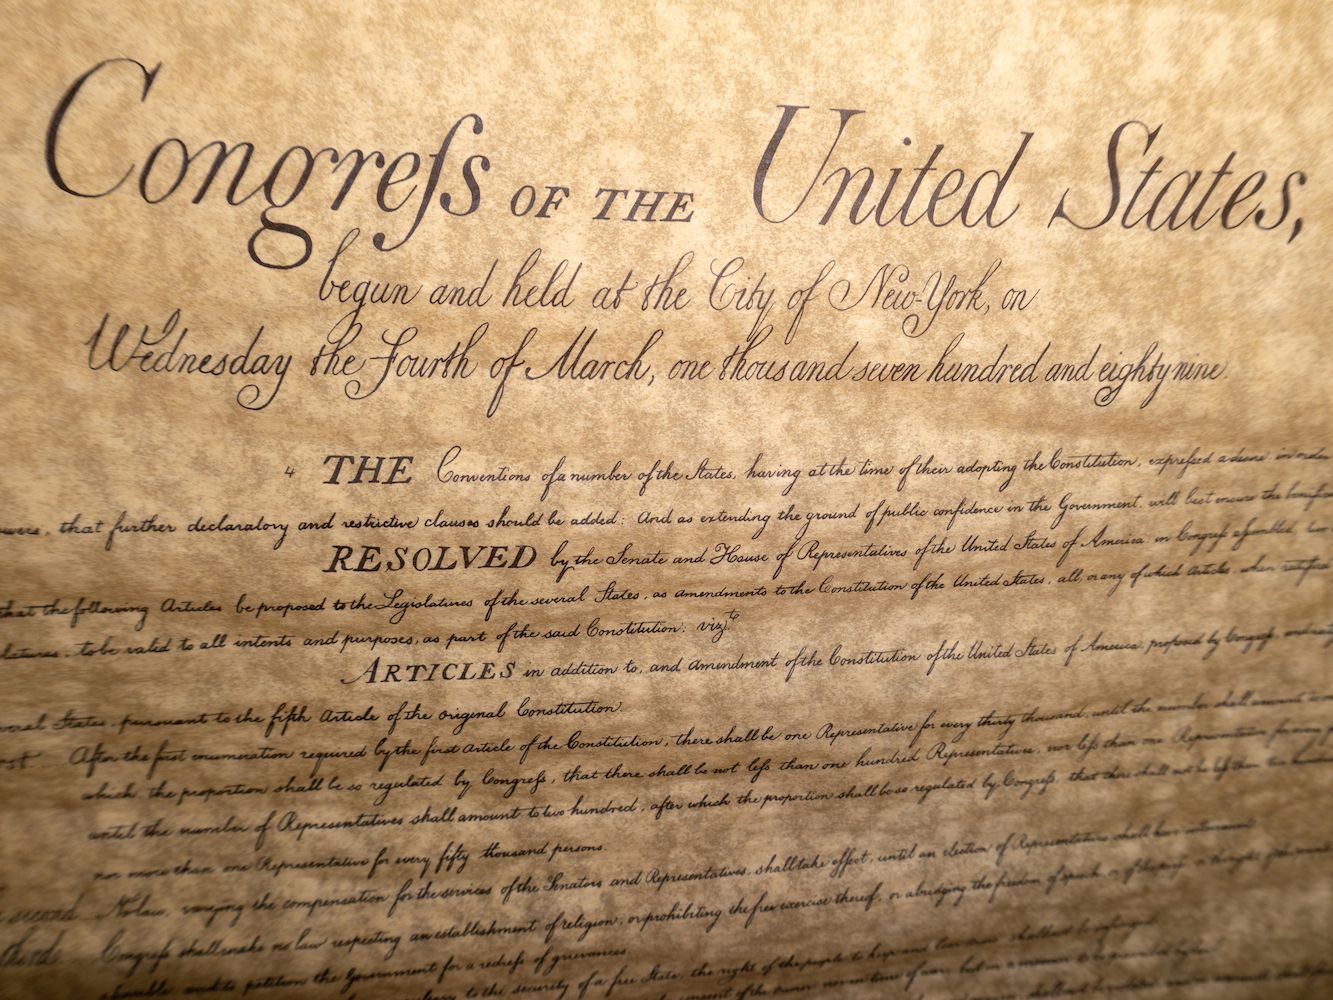 Congreſs OF THE United States,
begun and held at the City of New-York, on
Wednesday the Fourth of March, one thousand seven hundred and eighty nine.
THE Conventions of a number of the States, having at the time of their adopting the Constitution, expreſsed a desire in order
that further declaratory and restrictive clauses should be added: And as extending the ground of public confidence in the Government, will best ensure the
RESOLVED by the Senate and House of Representatives of the United States of America, in Congreſs aſsembled, two
that the following Articles be proposed to the Legislatures of the several States, as amendments to the Constitution of the United States, all, or any of which Articles, when ratified
to be valid to all intents and purposes, as part of the said Constitution; vizt.
ARTICLES in addition to, and amendment of the Constitution of the United States of America, proposed by Congreſs, and
States, pursuant to the fifth Article of the original Constitution.
After the first enumeration required by the first Article of the Constitution, there shall be one Representative for every thirty thousand, until the number shall amount
which the proportion shall be so regulated by Congreſs, that there shall be not leſs than one hundred Representatives, nor leſs than one Representative for every
until the number of Representatives shall amount to two hundred, after which the proportion shall be so regulated by Congreſs, that there shall not be leſs than two
nor more than one Representative for every fifty thousand persons.
second No law, varying the compensation for the services of the Senators and Representatives, shall take effect, until an election of Representatives shall have intervened.
third Congreſs shall make no law respecting an establishment of religion, or prohibiting the free exercise thereof; or abridging the freedom of speech, or of the
and to petition the Government for a redreſs of grievances.
to the security of a free State, the right of the people to keep and bear arms, shall not be infringed.